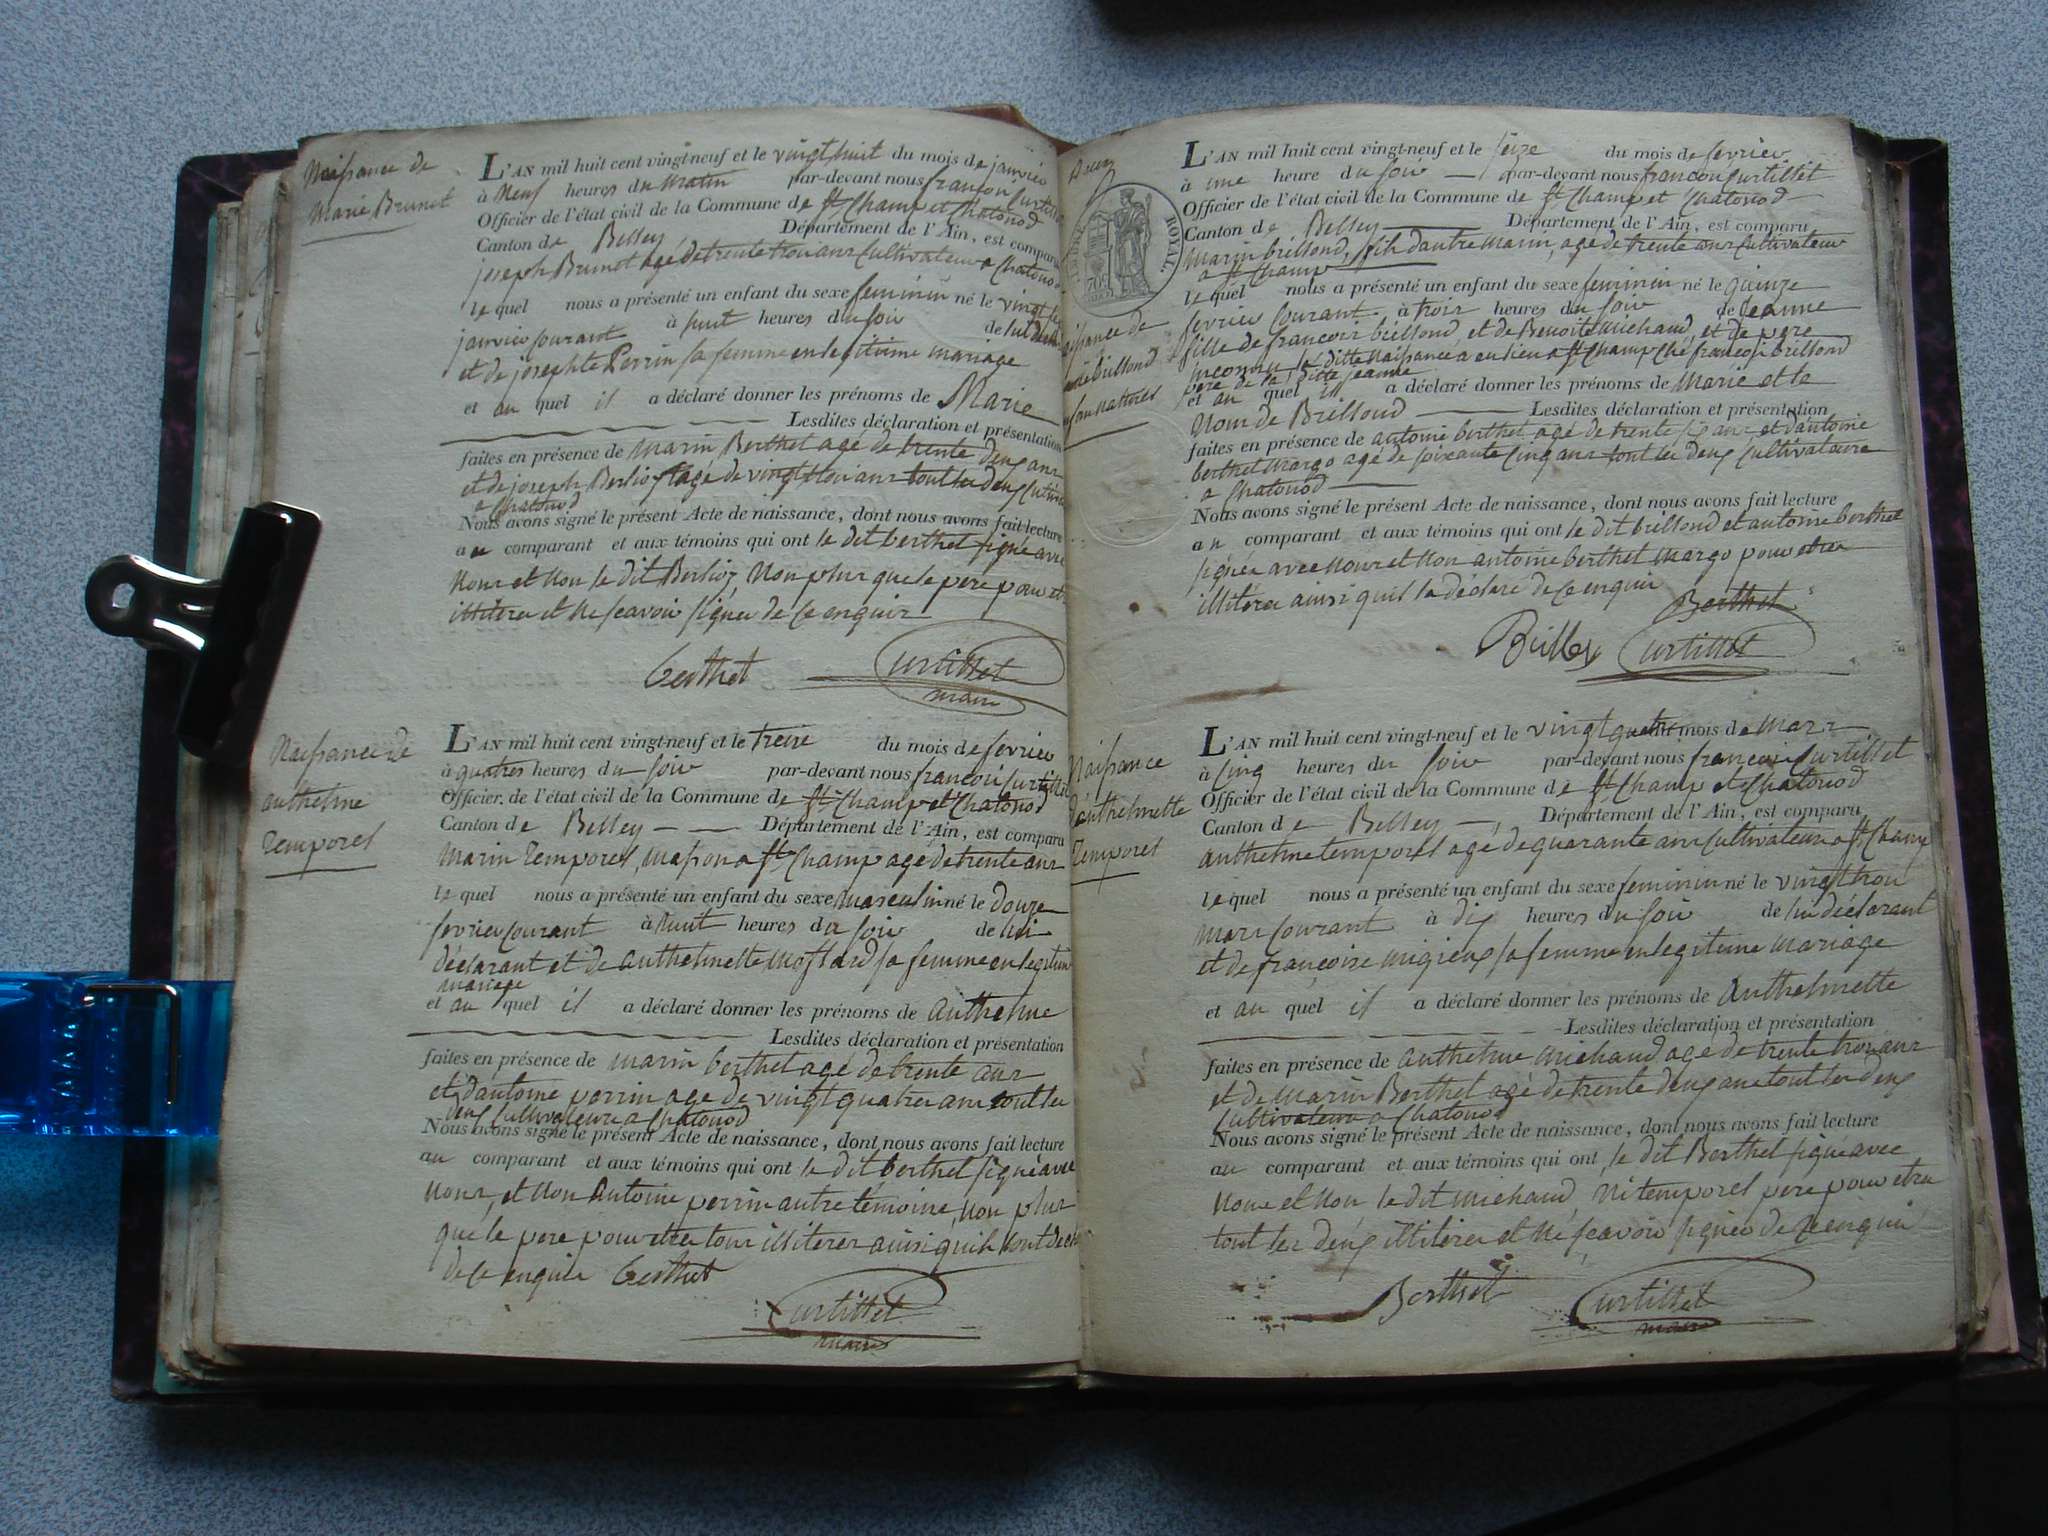 Naissance de
Marie Brunet
L'AN mil huit cent vingt-neuf et le vingt huit du mois de janvier
à Neuf heures du Matin par-devant nous françoi Curtillet
Officier de l'état civil de la Commune de St Champ et Chatonod
Canton de Belley, Département de l'Ain, est comparu
joseph Brunet agé de trente troi ans Cultivateur a Chatonod
le quel nous a présenté un enfant du sexe feminin né le vingt
janvier courant à huit heures du soir de lui
et de josephte Perrin sa femme en legitime mariage
et au quel il a déclaré donner les prénoms de Marie
Lesdites déclaration et présentation
faites en présence de Marin Berthet agé de trente deux ans
et de joseph Berlioz agé de vingt troi ans tout les deux
a Chatonod
Nous avons signé le présent Acte de naissance, dont nous avons fait lecture
au comparant et aux témoins qui ont le dit berthet signé avec
nous et non le dit Berlioz Non plus que le pere pour
illiterer et ne scavoir signer de ce enquir
Berthet Curtillet
maire
Naissance de
anthelme
Temporel
L'AN mil huit cent vingt-neuf et le treize du mois de fevrier
à quatres heures du soir par-devant nous françoi Curtillet
Officier de l'état civil de la Commune de St Champ et Chatonod
Canton de Belley Département de l'Ain, est comparu
Marin Temporel, masson a St Champ agé de trente ans
le quel nous a présenté un enfant du sexe masculin né le douze
fevrier courant à huit heures du soir de lui
déclarant et de anthelmette Mostard sa femme en legitime
mariage
et au quel il a déclaré donner les prénoms de anthelme
Lesdites déclaration et présentation
faites en présence de marin berthet agé de trente ans
et d'antoine perrin agé de vingt quatre ans tout les
deux Cultivateurs a Chatonod
Nous avons signé le présent Acte de naissance, dont nous avons fait lecture
au comparant et aux témoins qui ont le dit berthet signé avec
nous, et non Antoine perrin autre temoins, non plus
que le pere pour etre tous illiterer ainsi quil
de ce enquir Berthet
Curtillet
maire
TIMBRE ROYAL.
Naissance de
Marie brillond
enfant naturel
L'AN mil huit cent vingt-neuf et le seize du mois de fevrier
à une heure du soir par-devant nous françoi Curtillet
Officier de l'état civil de la Commune de St Champ et Chatonod
Canton de Belley Département de l'Ain, est comparu
Marin brillond, fils d'autre Marin, agé de trente ans Cultivateur
a St Champ
le quel nous a présenté un enfant du sexe feminin né le quinze
fevrier courant à troir heures du soir de Jeanne
fille de francois brillond, et de Benoite michaud, et de pere
inconnu la ditte naissance a eu lieu a St Champ ché francoi brillond
pere de la ditte jeanne
et au quel il a déclaré donner les prénoms de Marie et le
Nom de Brillond Lesdites déclaration et présentation
faites en présence de antoine berthet agé de trente ans et d'antoine
berthet Margo agé de soixante cinq ans tout les deux Cultivateurs
a Chatonod
Nous avons signé le présent Acte de naissance, dont nous avons fait lecture
au comparant et aux témoins qui ont le dit brillond et antoine berthet
signés avec nous et non antoine berthet Margo pour etre
illiterer ainsi quil la déclaré de ce enquir
Berthet
Curtillet
Naissance
d'anthelmette
Temporel
L'AN mil huit cent vingt-neuf et le vingt quatre mois de Mars
à cinq heures du soir par-devant nous françoi Curtillet
Officier de l'état civil de la Commune de St Champ et Chatonod
Canton de Belley, Département de l'Ain, est comparu
anthelme temporel agé de quarante ans Cultivateur a St Champ
le quel nous a présenté un enfant du sexe feminin né le vingt troir
mars courant à dix heures du soir de lui déclarant
et de françoise migieux sa femme en legitime mariage
et au quel il a déclaré donner les prénoms de anthelmette
Lesdites déclaration et présentation
faites en présence de anthelme michaud agé de trente troir ans
et de Marin Berthet agé de trente deux ans tout les deux
Cultivateur a Chatonod
Nous avons signé le présent Acte de naissance, dont nous avons fait lecture
au comparant et aux témoins qui ont le dit Berthet signé avec
nous et non le dit michaud Ni temporel pere pour etre
tout les deux illiterer et Ne scavoir signer de ce enquir
Berthet Curtillet
maire